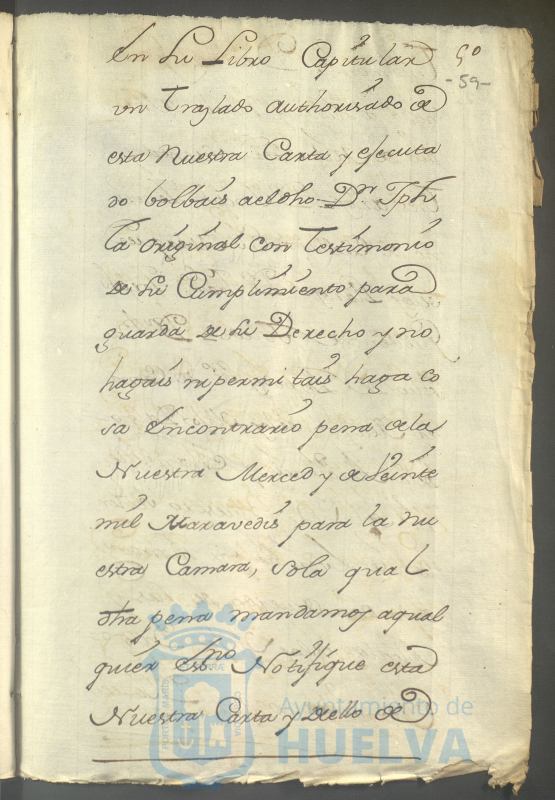 En su Libro Capitular
50
-59-
un Traslado authorisado de
esta Nuestra Carta y ejecuta
do bolbais a el dho Dn. Jph
la original con Testimonio
de su Cumplimiento para
guarda de su Derecho y no
hagais ni permitais haga co
sa en contrario pena de la
Nuestra Merced y de Veinte
mil Maravedis para la nu
estra Camara, so la qual
dha pena mandamos a qual
quier essno Notifique esta
Nuestra Carta y de ello de
Ayuntamiento de
HUELVA